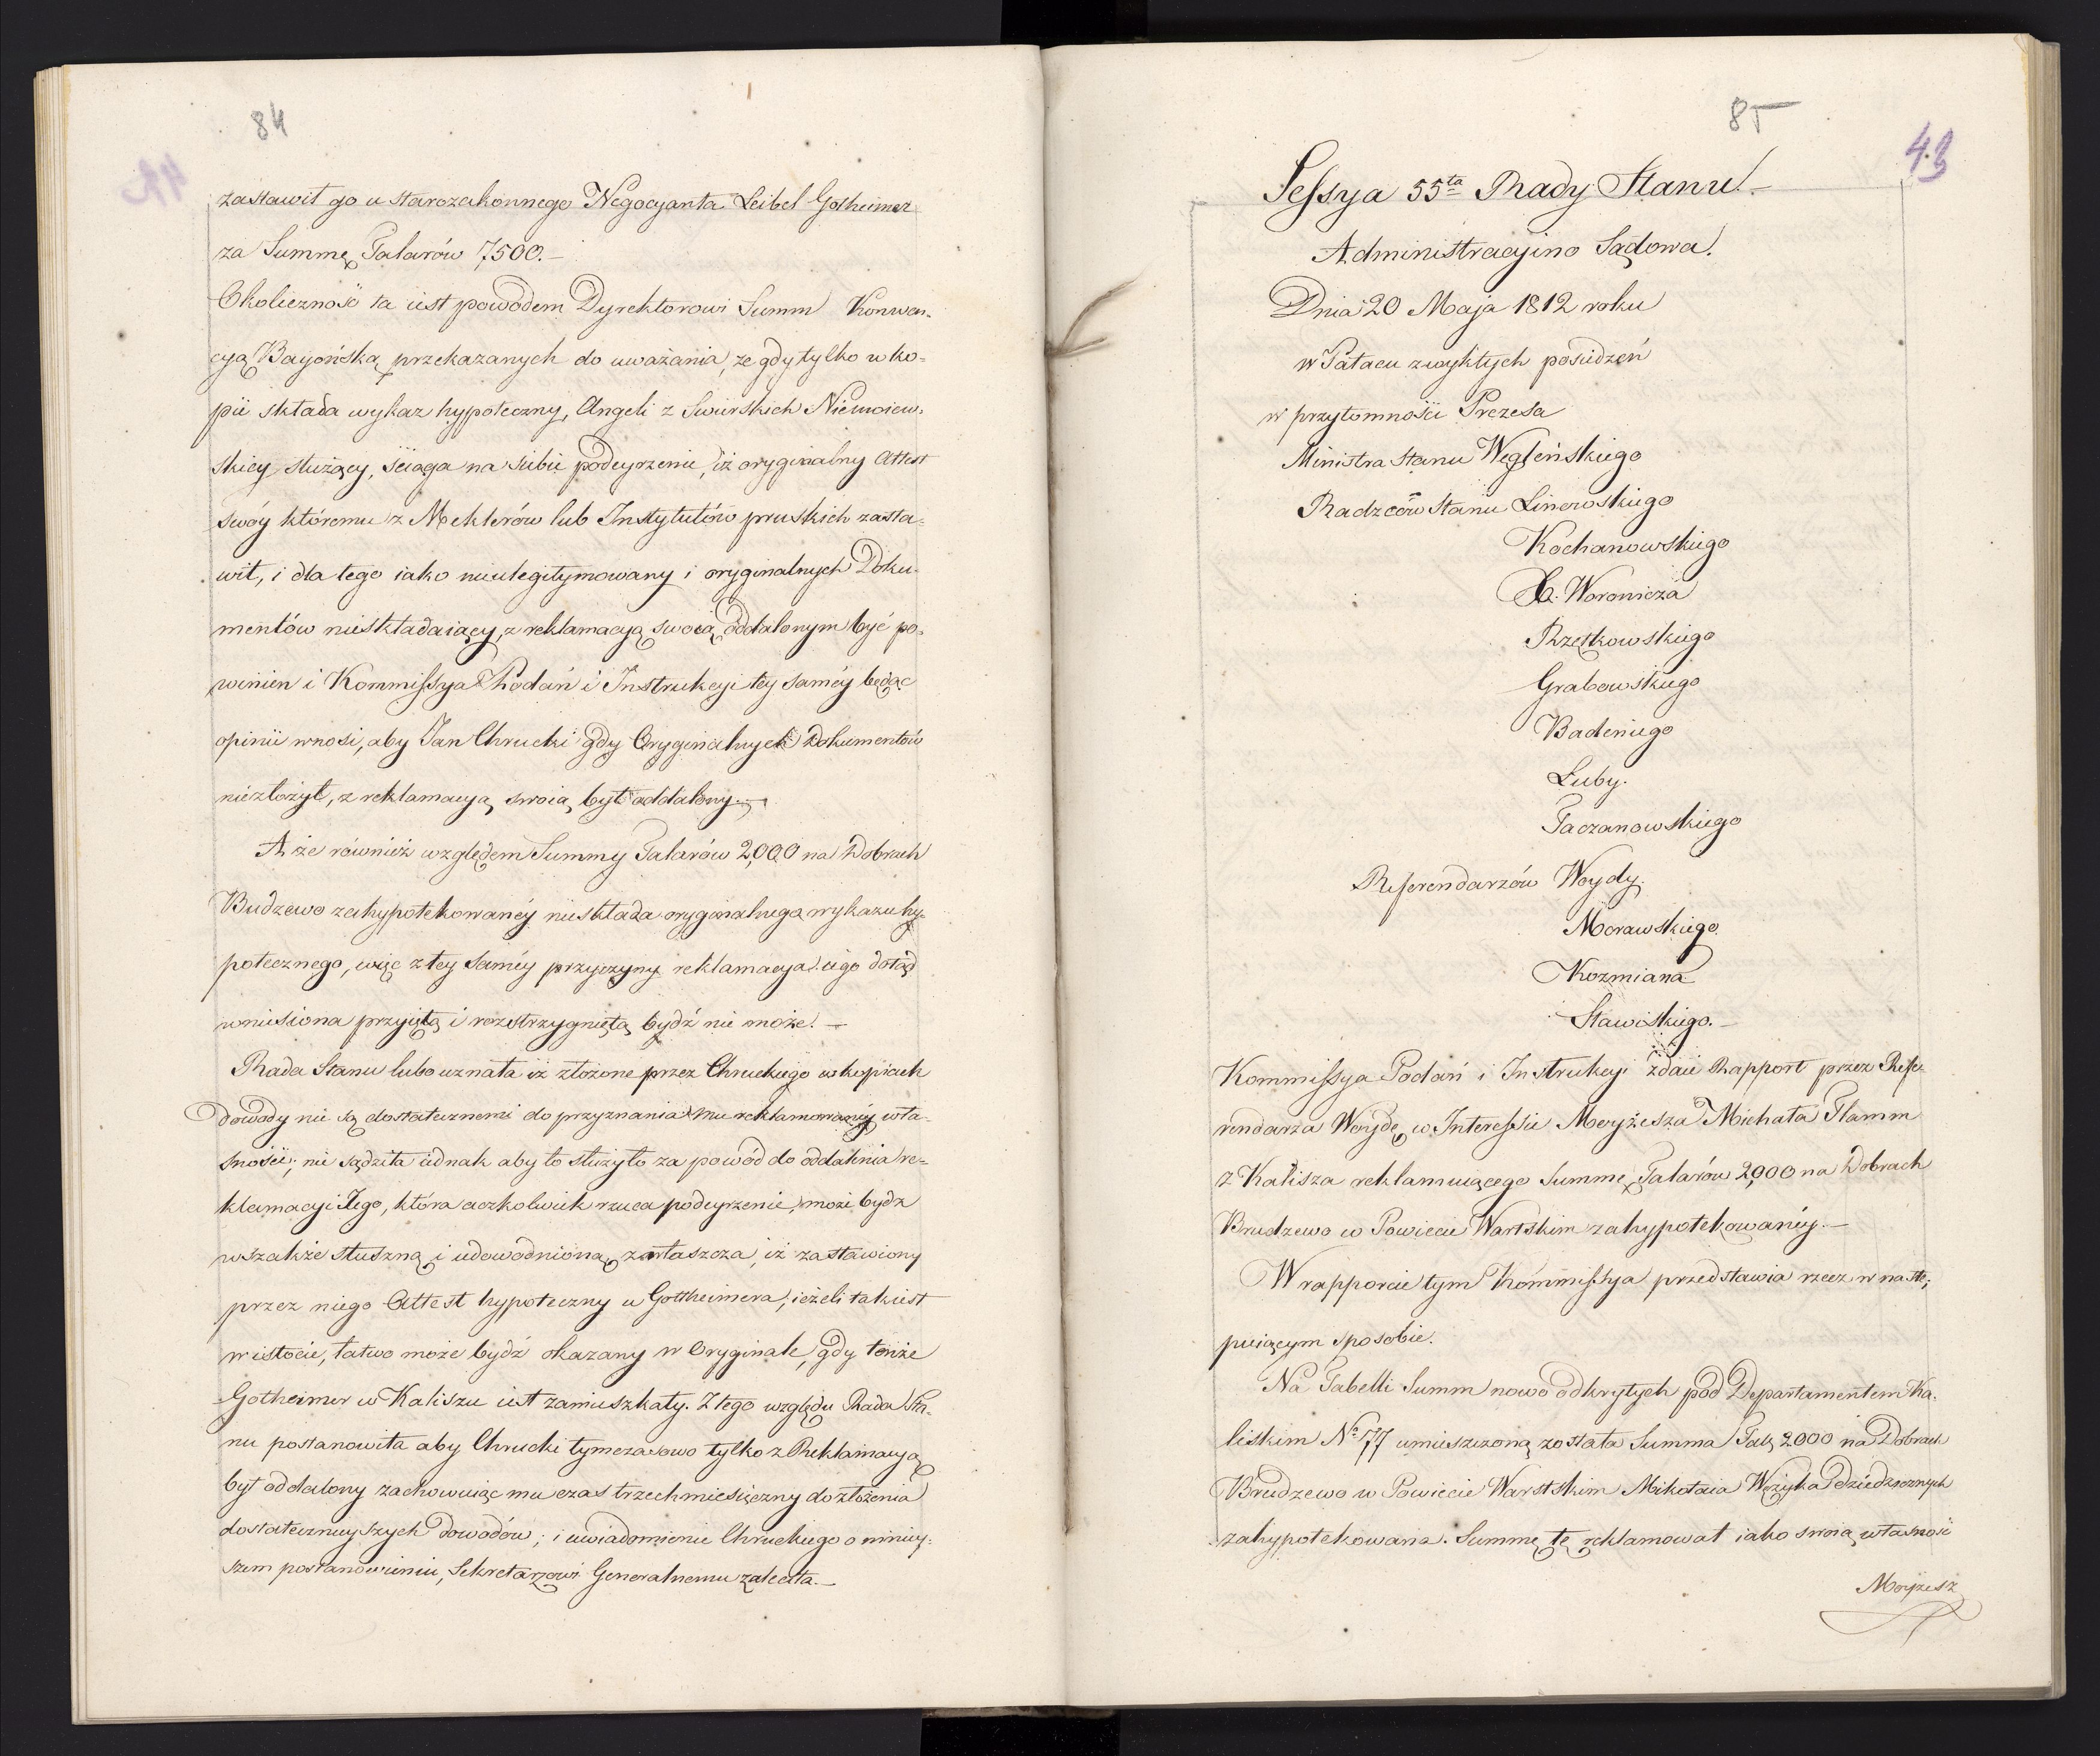 84
zastawił go u starozakonnego Negocyanta Leibel Gotheimer
za Summę Talarów 7,500.—
Okoliczność ta iest powodem Dyrektorowi Summ Konwen-
cyą Bayońską przekazanych do uważania, że gdy tylko w ko-
pii składa wykaz hypoteczny, Angeli z Swinrskich Niemoiew-
skiey służący, ściąga na siebie podeyrzenie, iż oryginalny Attest
swóy któremu z Meklerów lub Instytutów pruskich zasta-
wił, i dla tego iako nieulegitymowany i oryginalnych Doku-
mentów nieskładaiący, z reklamacyą swoią oddalonym być po-
winien i Kommissya Podań i Instrukcyi tey saméy będąc
opinii wnosi, aby Jan Chrucki gdy Oryginalnych Dokumentów
niezłożył, z reklamacyą swoią był oddalony.—
A że również względem Summy Talarów 2,000 na Dobrach
Budzewo zahypotekowanéy nieskłada oryginalnego wykazu hy-
potecznego, więc z tey saméy przyczyny reklamacya iego dotąd
wniesiona przyiętą i rozstrzygniętą bydź nie może.—
Rada Stanu lubo uznała iż złożone przez Chruckiego w kopiach
dowody nie są dostatecznemi do przyznania mu reklamowanéy wła-
sności; nie sądziła iednak aby to służyło za powód do oddalenia re-
klamacyi Jego, która aczkolwiek rzuca podeyrzenie, może bydź
wszakże słuszną i udowodnioną, zwłaszcza, iż zastawiony
przez niego Attest hypoteczny u Gottheimera, ieżeli tak iest
w istocie, łatwo może bydź okazany w Oryginale, gdy tenże
Gotheimer w Kaliszu iest zamieszkały. Z tego względu Rada Sta-
nu postanowiła aby Chrucki tymczasowo tylko z Reklamacyą
był oddalony zachowuiąc mu czas trzechmiesięczny do złożenia
dostatecznieyszych dowodów; i uwiadomienie Chruckiego o niniey-
szem postanowieniu, Sekretarzowi Generalnemu zaleciła.—
85
43
Sessya 55ta Rady Stanu.—
Administracyino Sądowa.
Dnia 20 Maja 1812 roku
w Pałacu zwykłych posiedzeń
w przytomności Prezesa
Ministra Stanu Węgleńskiego
Radzców Stanu Linowskiego
Kochanowskiego
X. Woronicza
Rzętkowskiego
Grabowskiego
Badeniego
Łuby.
Taczanowskiego
Referendarzów Woydy.
Morawskiego.
Kozmiana
Stawiskiego.—
Kommissya Podań i Instrukcyi zdaie Rapport przez Refe-
rendarza Woydę w Interessie Moyżesza Michała Flamm
z Kalisza reklamuiącego Summę Talarów 2,000 na Dobrach
Brudzewo w Powiecie Wartskim zahypotekowanéy.—
W rapporcie tym Kommissya przedstawia rzecz w nastę-
puiącym sposobie.
Na Tabelli Summ nowo odkrytych pod Departamentem Ka-
liskim No 177 umieszczoną została Summa Tal. 2000 na Dobrach
Brudzewo w Powiecie Warstskim Mikołaia Wężyka Dziedzicznych
zahypotekowana. Summę tę reklamował iako swoią własność
Moyżesz